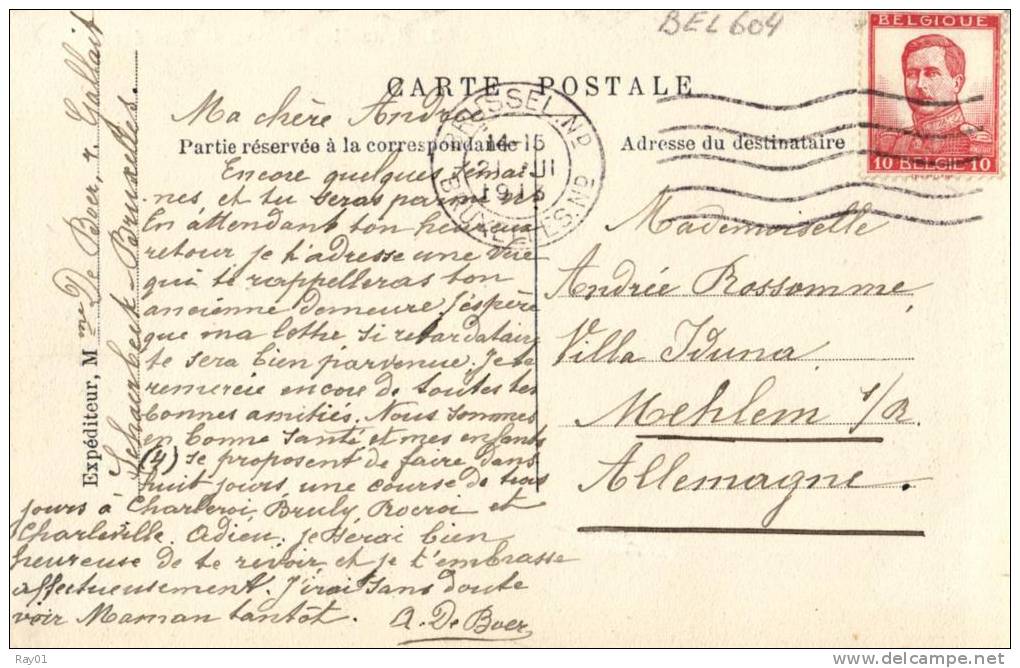 BEL 604
BELGIQUE
10 BELGIË 10
CARTE POSTALE
Partie réservée à la correspondance
Adresse du destinataire
BRUSSEL.ND
14-15
21 III
1913
BRUXELLES.ND
Expéditeur, Mme De Boer, r. Gallait
Schaerbeek-Bruxelles.
Ma chère Andrée
Encore quelques semai-
nes et tu seras parmi
En attendant ton heureux
retour je t'adresse une vue
qui te rappelleras ton
ancienne demeure. J'espère
que ma lettre si retardataire
te sera bien parvenue. Je te
remercie encore de toutes tes
bonnes amitiés. Nous sommes
en bonne santé et mes enfants
(4) se proposent de faire dans
huit jours une course de trois
jours à Charleroi Bruly Rocroi et
Charleville. Adieu, je serai bien
heureuse de te revoir et je t'embrasse
affectueusement. J'irai sans doute
voir Maman tantôt.
A. De Boer
Mademoiselle
Andrée Rossomme
Villa Iduna
Mehlem s/R.
Allemagne.
Ray01
www.delcampe.net